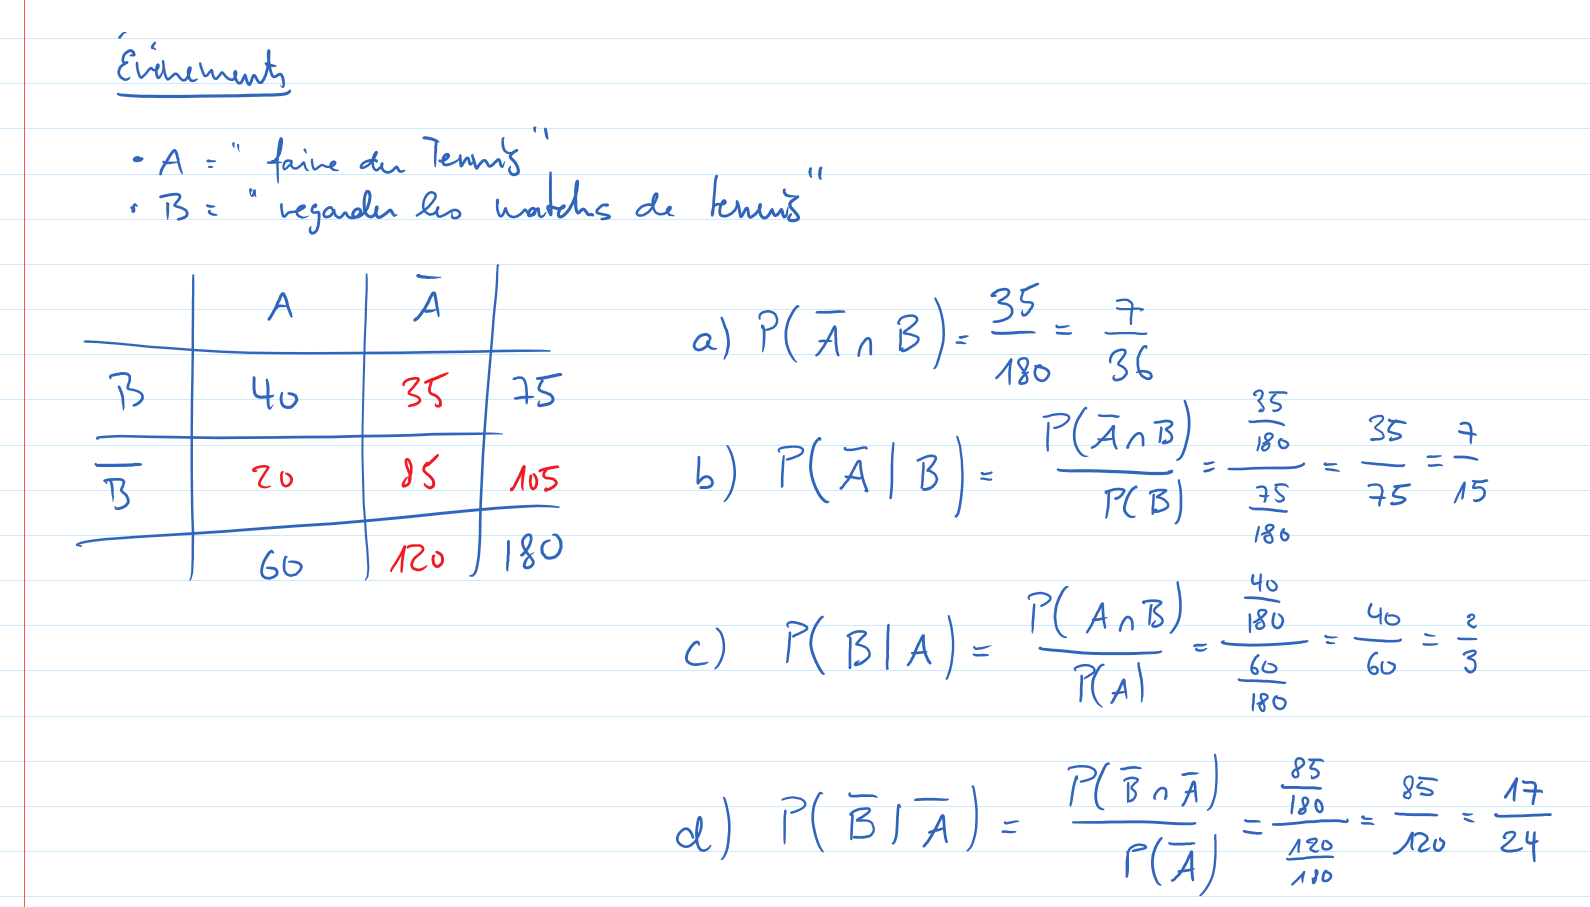 Événements
• A = " faire du Tennis"
• B = " regarder les matchs de tennis"
A A̅
B 40 35 75
B̅ 20 85 105
60 120 180
a) P( A̅ ∩ B ) = 35/180 = 7/36
b) P( A̅ | B ) = P(A̅ ∩ B)/P(B) = (35/180)/(75/180) = 35/75 = 7/15
c) P( B | A ) = P( A ∩ B)/P(A) = (40/180)/(60/180) = 40/60 = 2/3
d) P( B̅ | A̅ ) = P( B̅ ∩ A̅)/P(A̅) = (85/180)/(120/180) = 85/120 = 17/24